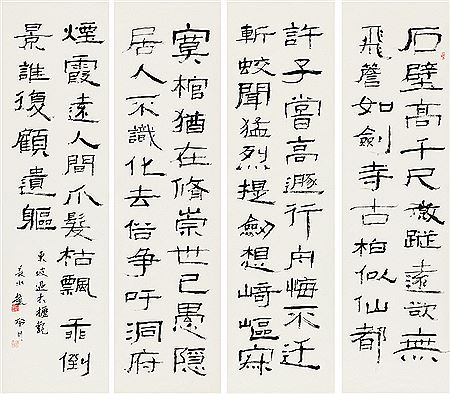 石壁高千尺微蹤遠欲無
飛簷如劍寺古柏似仙都
許子嘗高遯行舟悔不迂
斬蛟聞猛烈提劒想崎嶇寂
寞棺猶在脩崇世已愚隱
居人不識化去俗爭吁洞府
煙霞遠人間爪髮枯飄乘倒
景誰復顧遺軀
東坡過木櫪觀